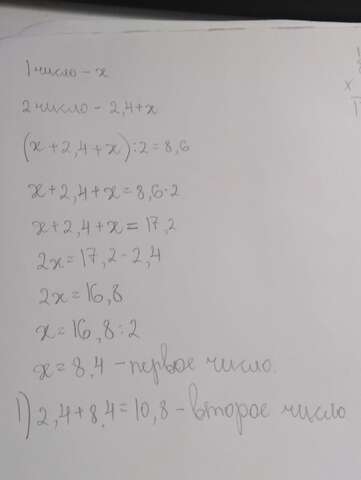 1 число – x
2 число – 2,4+x
(x+2,4+x):2=8,6
x+2,4+x=8,6·2
x+2,4+x=17,2
2x=17,2-2,4
2x=16,8
x=16,8:2
x=8,4 – первое число.
1) 2,4+8,4=10,8 – второе число